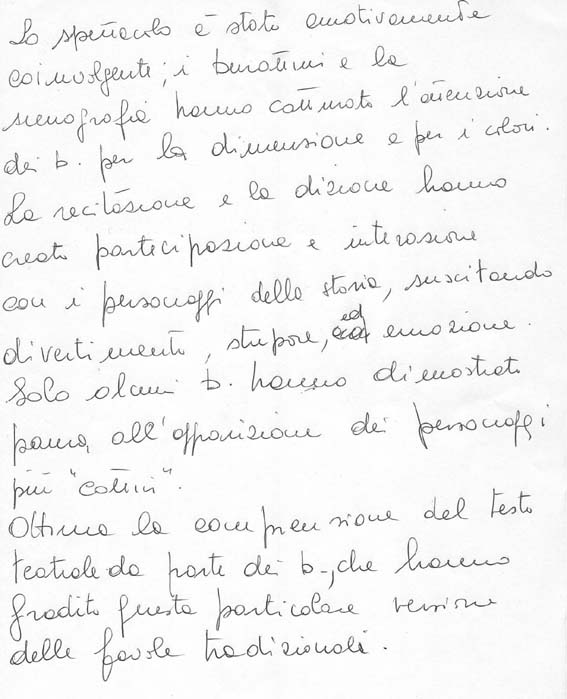 Lo spettacolo è stato emotivamente
coinvolgente; i burattini e la
scenografia hanno catturato l'attenzione
dei b. per la dimensione e per i colori.
La recitazione e la dizione hanno
creato partecipazione e interazione
con i personaggi della storia, suscitando
divertimento, stupore, ed emozione.
Solo alcuni b. hanno dimostrato
paura, all'apparizione dei personaggi
più "cattivi".
Ottima la comprensione del testo
teatrale da parte dei b., che hanno
gradito questa particolare versione
delle favole tradizionali.